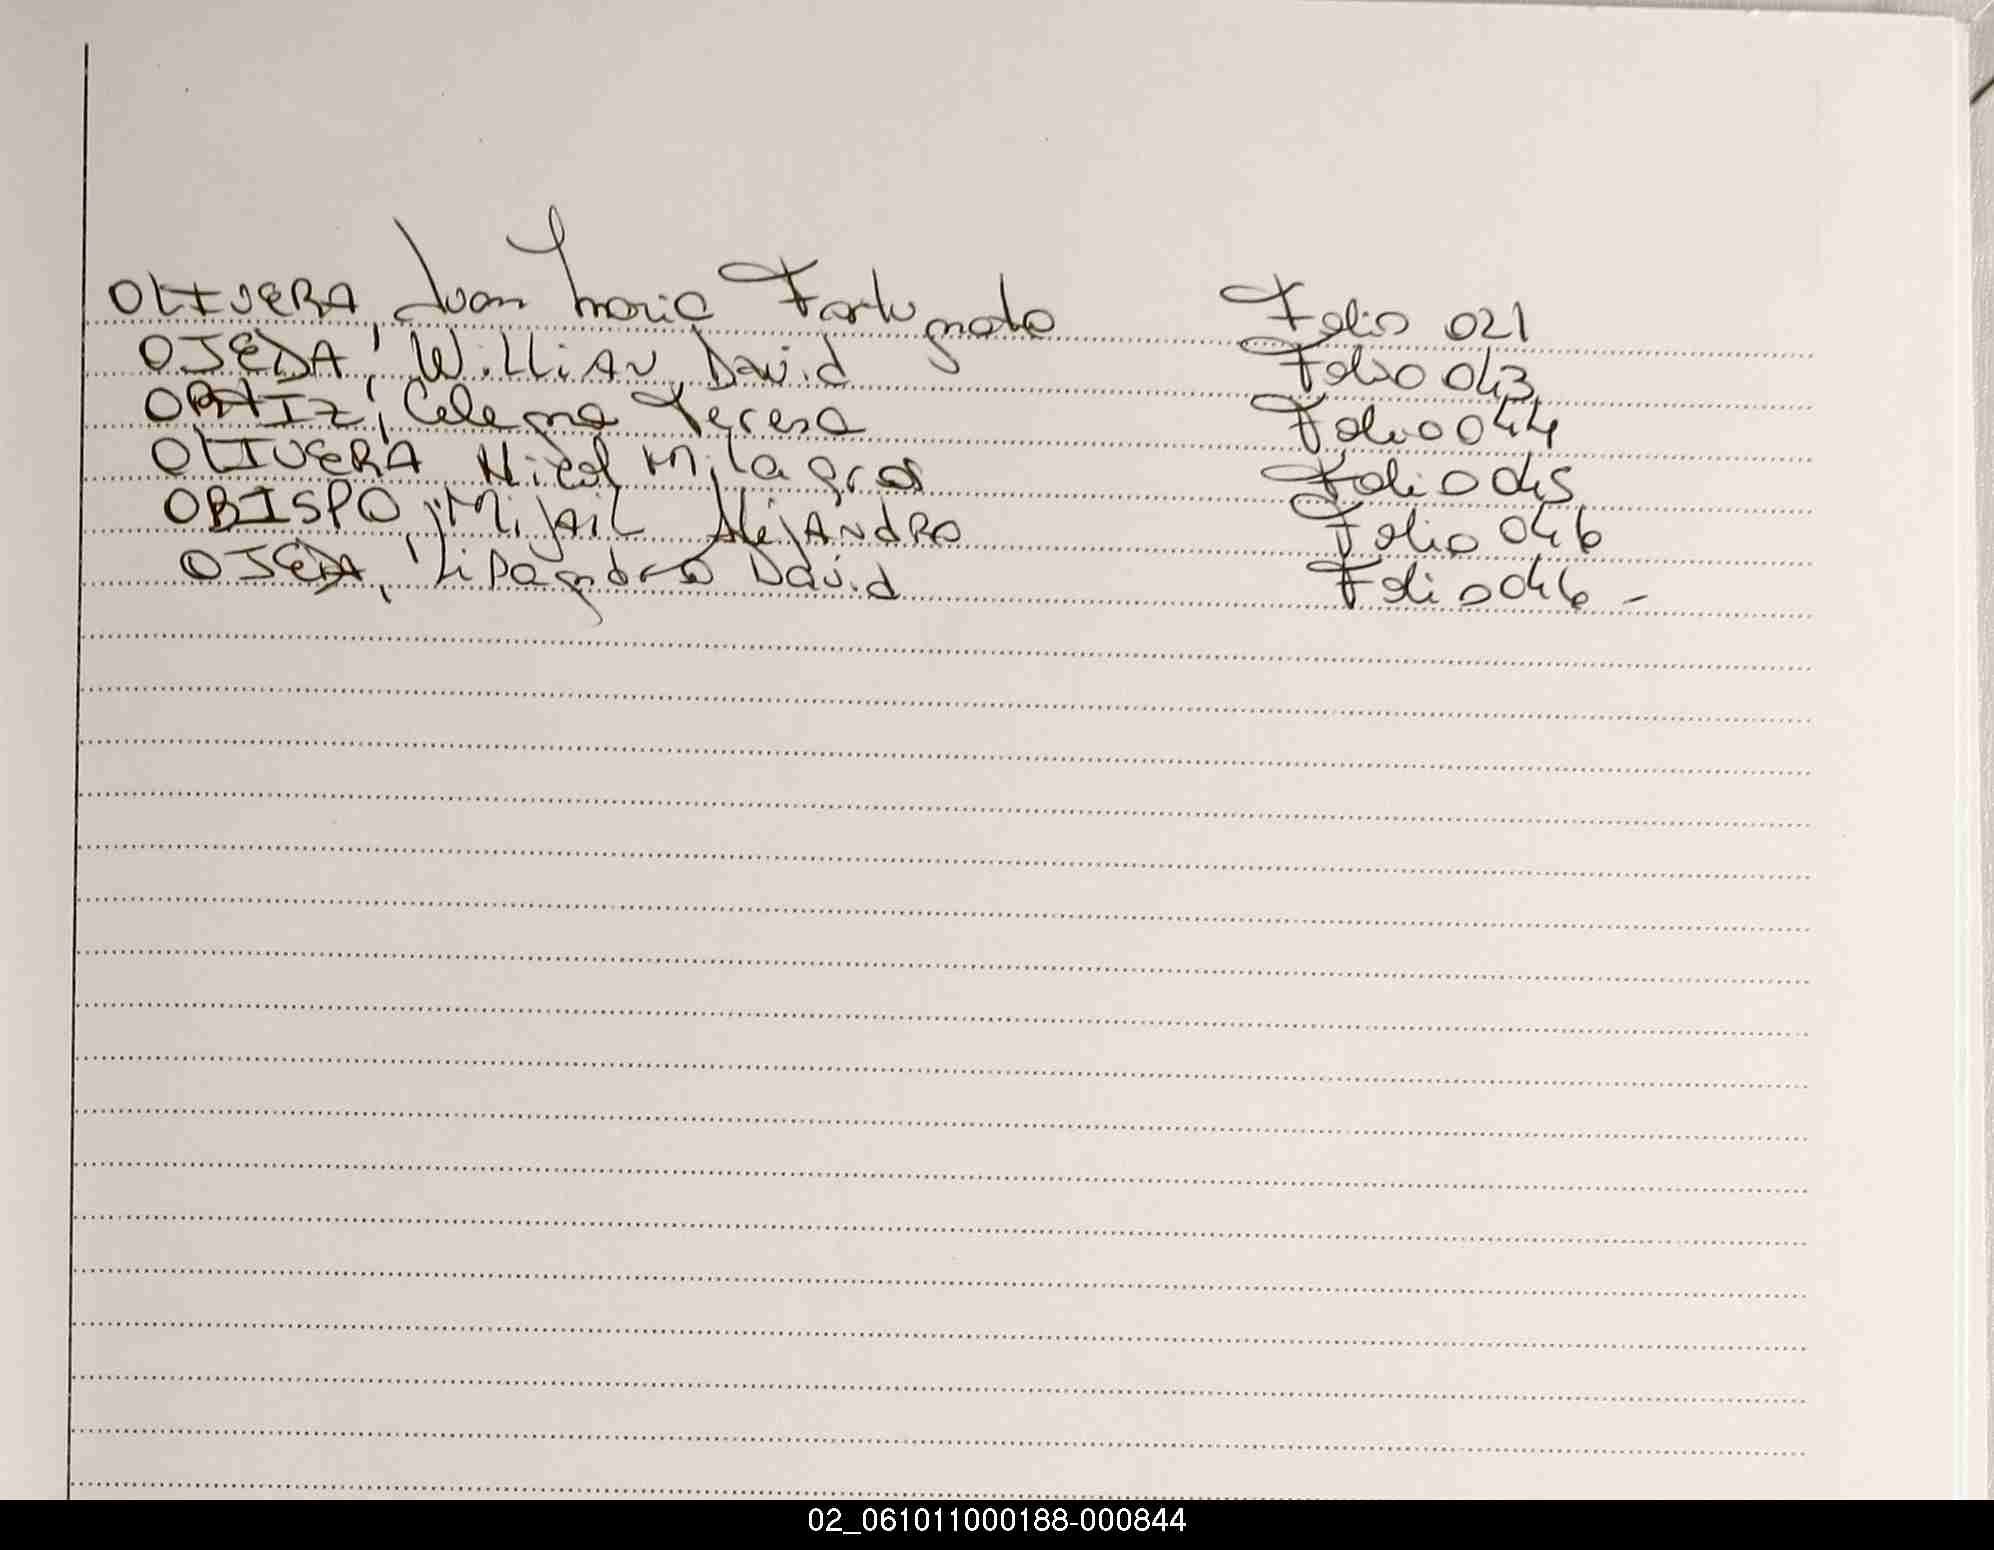 OLIVERA, Juan Maria Fortunato Folio 021
OJEDA, WilliAN David Folio 043
ORTIZ, Celema Teresa Folio 044
OLIVERA Nicol Milagros Folio 045
OBISPO, MijAIL AlejANdRO Folio 046
OJEDA, Lisandro David Folio 046 -
02_061011000188-000844